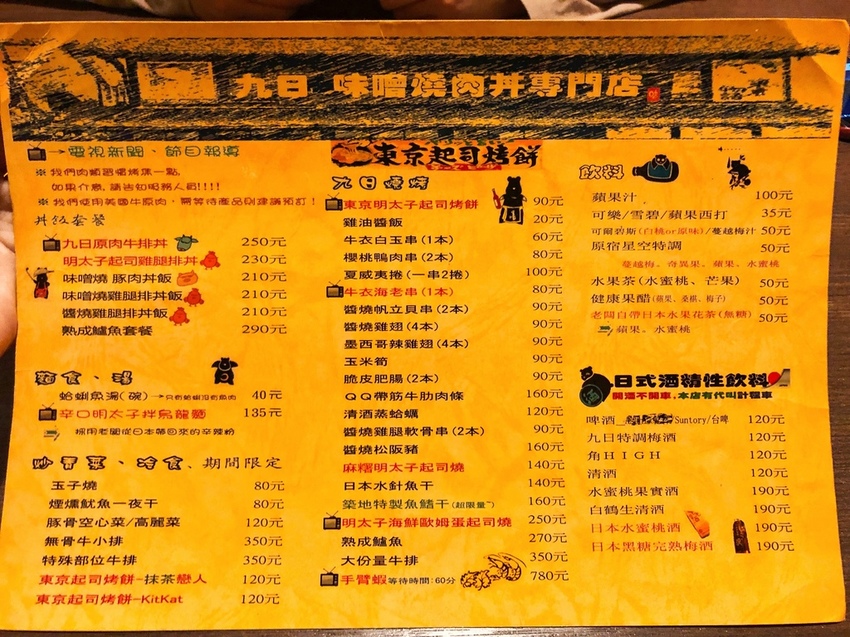 九日 味噌燒肉丼專門店
→電視新聞、節目報導
※我們肉類習慣烤焦一點。
如果介意，請告知服務人員!!!!
丼飯套餐
九日原肉牛排丼 250元
明太子起司雞腿排丼 230元
味噌燒 豚肉丼飯 210元
味噌燒雞腿排丼飯 210元
醬燒雞腿排丼飯 210元
熟成鱸魚套餐 290元
麵食、湯
蛤蜊魚湯(碗) 40元
辛口明太子拌烏龍麵 135元
採用老闆從日本帶回來的辛辣粉
炒青菜、冷食、期間限定
玉子燒 80元
煙燻魷魚一夜干 80元
豚骨空心菜/高麗菜 120元
無骨牛小排 350元
特殊部位牛排 350元
東京起司烤餅-抹茶戀人 120元
東京起司烤餅-KitKat 120元
東京起司烤餅
九日燒烤
東京明太子起司烤餅 90元
雞油醬飯 20元
牛衣白玉串(1本) 60元
櫻桃鴨肉串(2本) 80元
夏威夷捲(一串2捲) 100元
牛衣海老串(1本) 80元
醬燒帆立貝串(2本) 90元
醬燒雞翅(4本) 90元
墨西哥辣雞翅(4本) 90元
玉米筍 90元
脆皮肥腸(2本) 90元
QQ帶筋牛肋肉條 160元
清酒蒸蛤蠣 120元
醬燒雞腿軟骨串(2本) 90元
醬燒松阪豬 160元
麻糬明太子起司燒 140元
日本水針魚干 140元
築地特製魚鰭干(超限量~) 160元
明太子海鮮歐姆蛋起司燒 250元
熟成鱸魚 270元
大份量牛排 350元
手臂蝦等待時間:60分 780元
飲料
蘋果汁 100元
可樂/雪碧/蘋果西打 35元
可爾碧斯(白桃or原味)/蔓越梅汁 50元
原宿星空特調 50元
蔓越梅、奇異果、蘋果、水蜜桃
水果茶(水蜜桃、芒果) 50元
健康果醋(蘋果、桑椹、梅子) 50元
老闆自帶日本水果花茶(無糖) 50元
蘋果、水蜜桃
日式酒精性飲料
開酒不開車,本店有代叫計程車
啤酒 Suntory/台啤 120元
九日特調梅酒 120元
角HIGH 120元
清酒 120元
水蜜桃果實酒 190元
白鶴生清酒 190元
日本水蜜桃酒 190元
日本黑糖完熟梅酒 190元